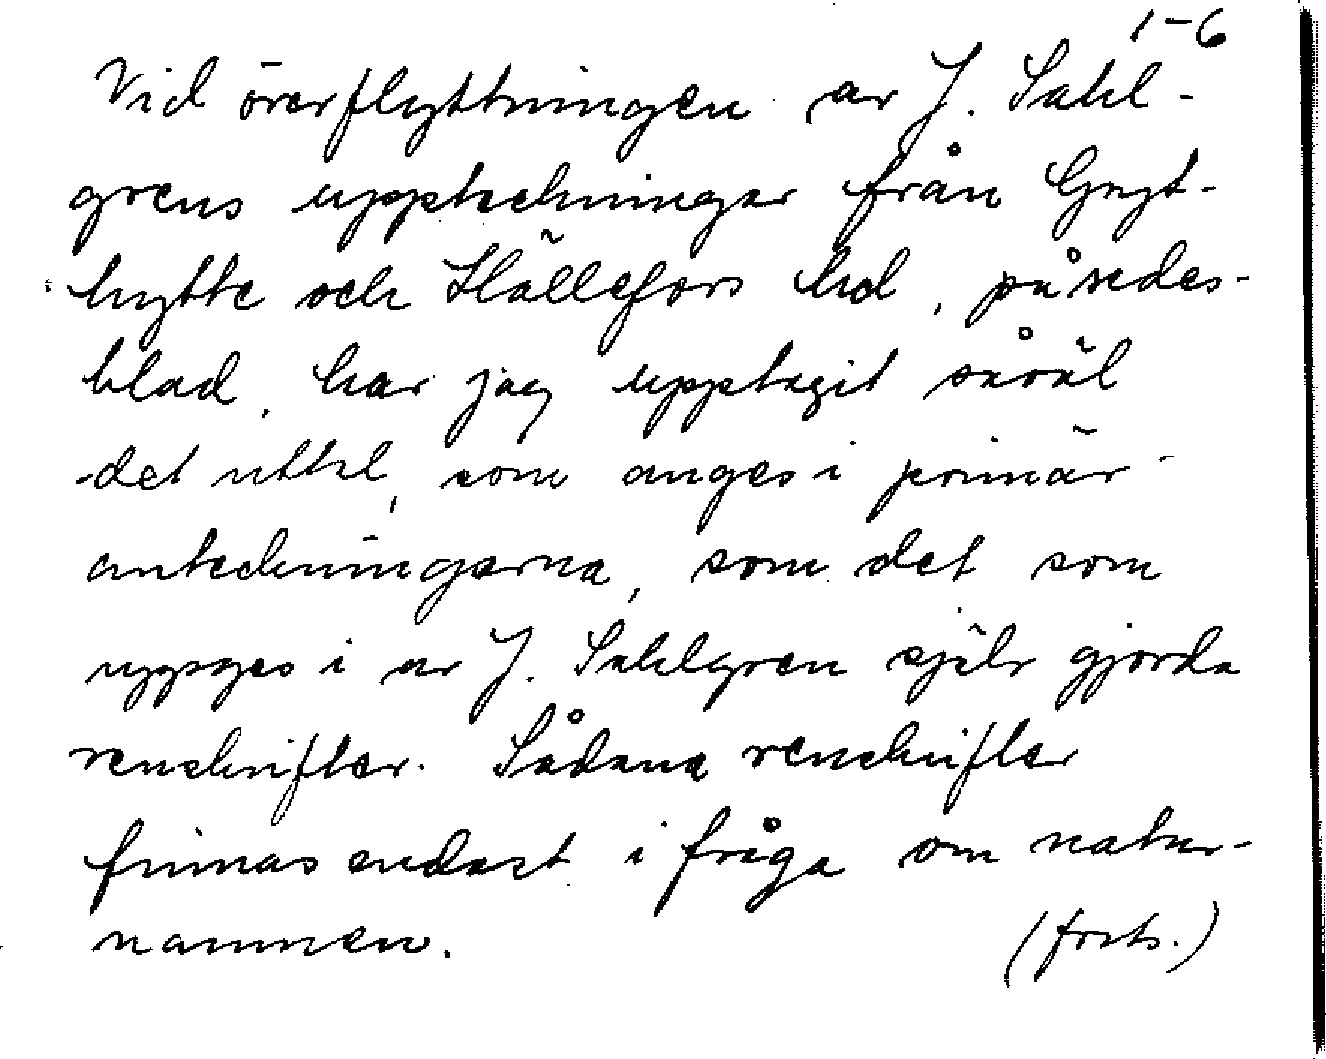 1-6
Vid överflyttningen av J. Sahl-
grens uppteckningar från Gryt-
hytte och Hällefors hd, på sedes-
blad, har jag upptagit såväl
det uttal, som anges i primär-
anteckningarna, som det som
uppges i av J. Sahlgren själv gjorda
renskrifter. Sådana renskrifter
finnas endast i fråga om natur-
namnen.
(forts.)